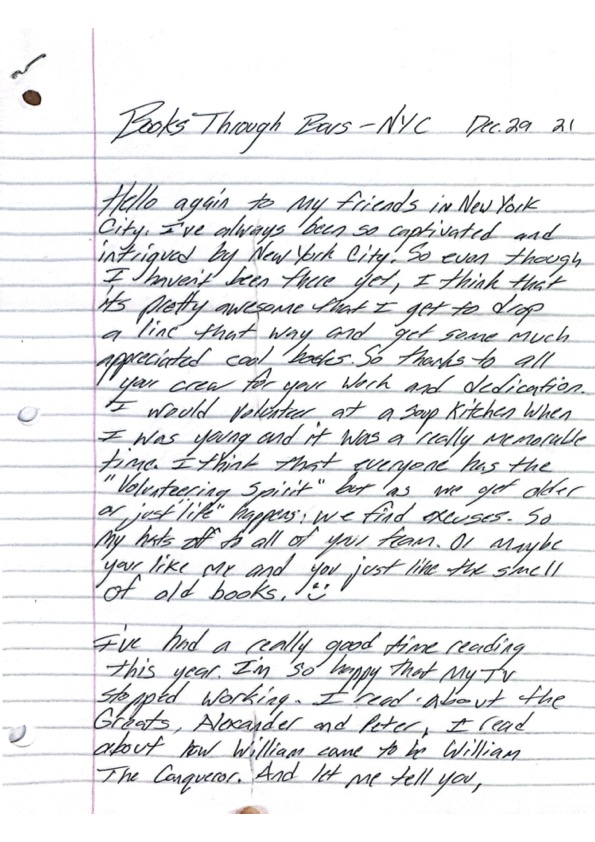 Books Through Bars - NYC Dec. 29 21
Hello again to my friends in New York
City. I've always been so captivated and
intrigued by New York City. So even though
I haven't been there yet, I think that
its pretty awesome that I get to drop
a line that way and get some much
appreciated cool books. So thanks to all
your crew for your work and dedication.
I would volunteer at a soup kitchen when
I was young and it was a really memorable
time. I think that everyone has the
"Volunteering Spirit" but as we get older
or just "life" happens; we find excuses. So
my hats off to all of your team. Or maybe
your like me and you just like the smell
of old books. :)
I've had a really good time reading
this year. I'm so happy that my TV
stopped working. I read about the
Greats, Alexander and Peter, I read
about how William came to be William
The Conqueror. And let me tell you,